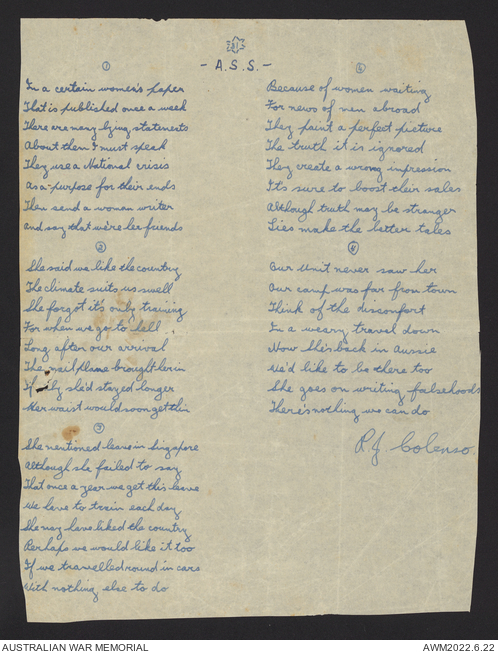 - A.S.S. -
①
In a certain women's paper
That is published once a week
There are many lying statements
About them I must speak
They use a National crisis
As a purpose for their ends
Then send a woman writer
and say that we're her friends
②
She said we like the country
The climate suits us swell
She forgot it's only training
For when we go to hell
Long after our arrival
The mail plane brought her in
If only she'd stayed longer
Her waist would soon get thin
③
She mentioned leave in Singapore
Although she failed to say
That once a year we get this leave
We have to train each day
She may have liked the country
Perhaps we would like it too
If we travelled round in cars
With nothing else to do
Because of women waiting
For news of men abroad
They paint a perfect picture
The truth it is ignored
They create a wrong impression
It's sure to boost their sales
Although truth may be stranger
Lies make the better tales
Our Unit never saw her
Our camp was far from town
Think of the discomfort
In a weary travel down
Now she's back in Aussie
We'd like to be there too
She goes on writing falsehoods
There's nothing we can do
P.J. Colenso.
AUSTRALIAN WAR MEMORIAL
AWM2022.6.22